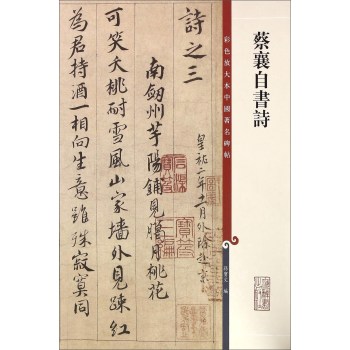 蔡襄自書詩
彩色放大本中國著名碑帖
孫寶文 編
詩之三
皇祐二年十一月外除赴京
南劔州芋陽鋪見臘月桃花
可笑夭桃耐雪風山家墻外見踈紅
為君持酒一相向生意雖殊寂寞同